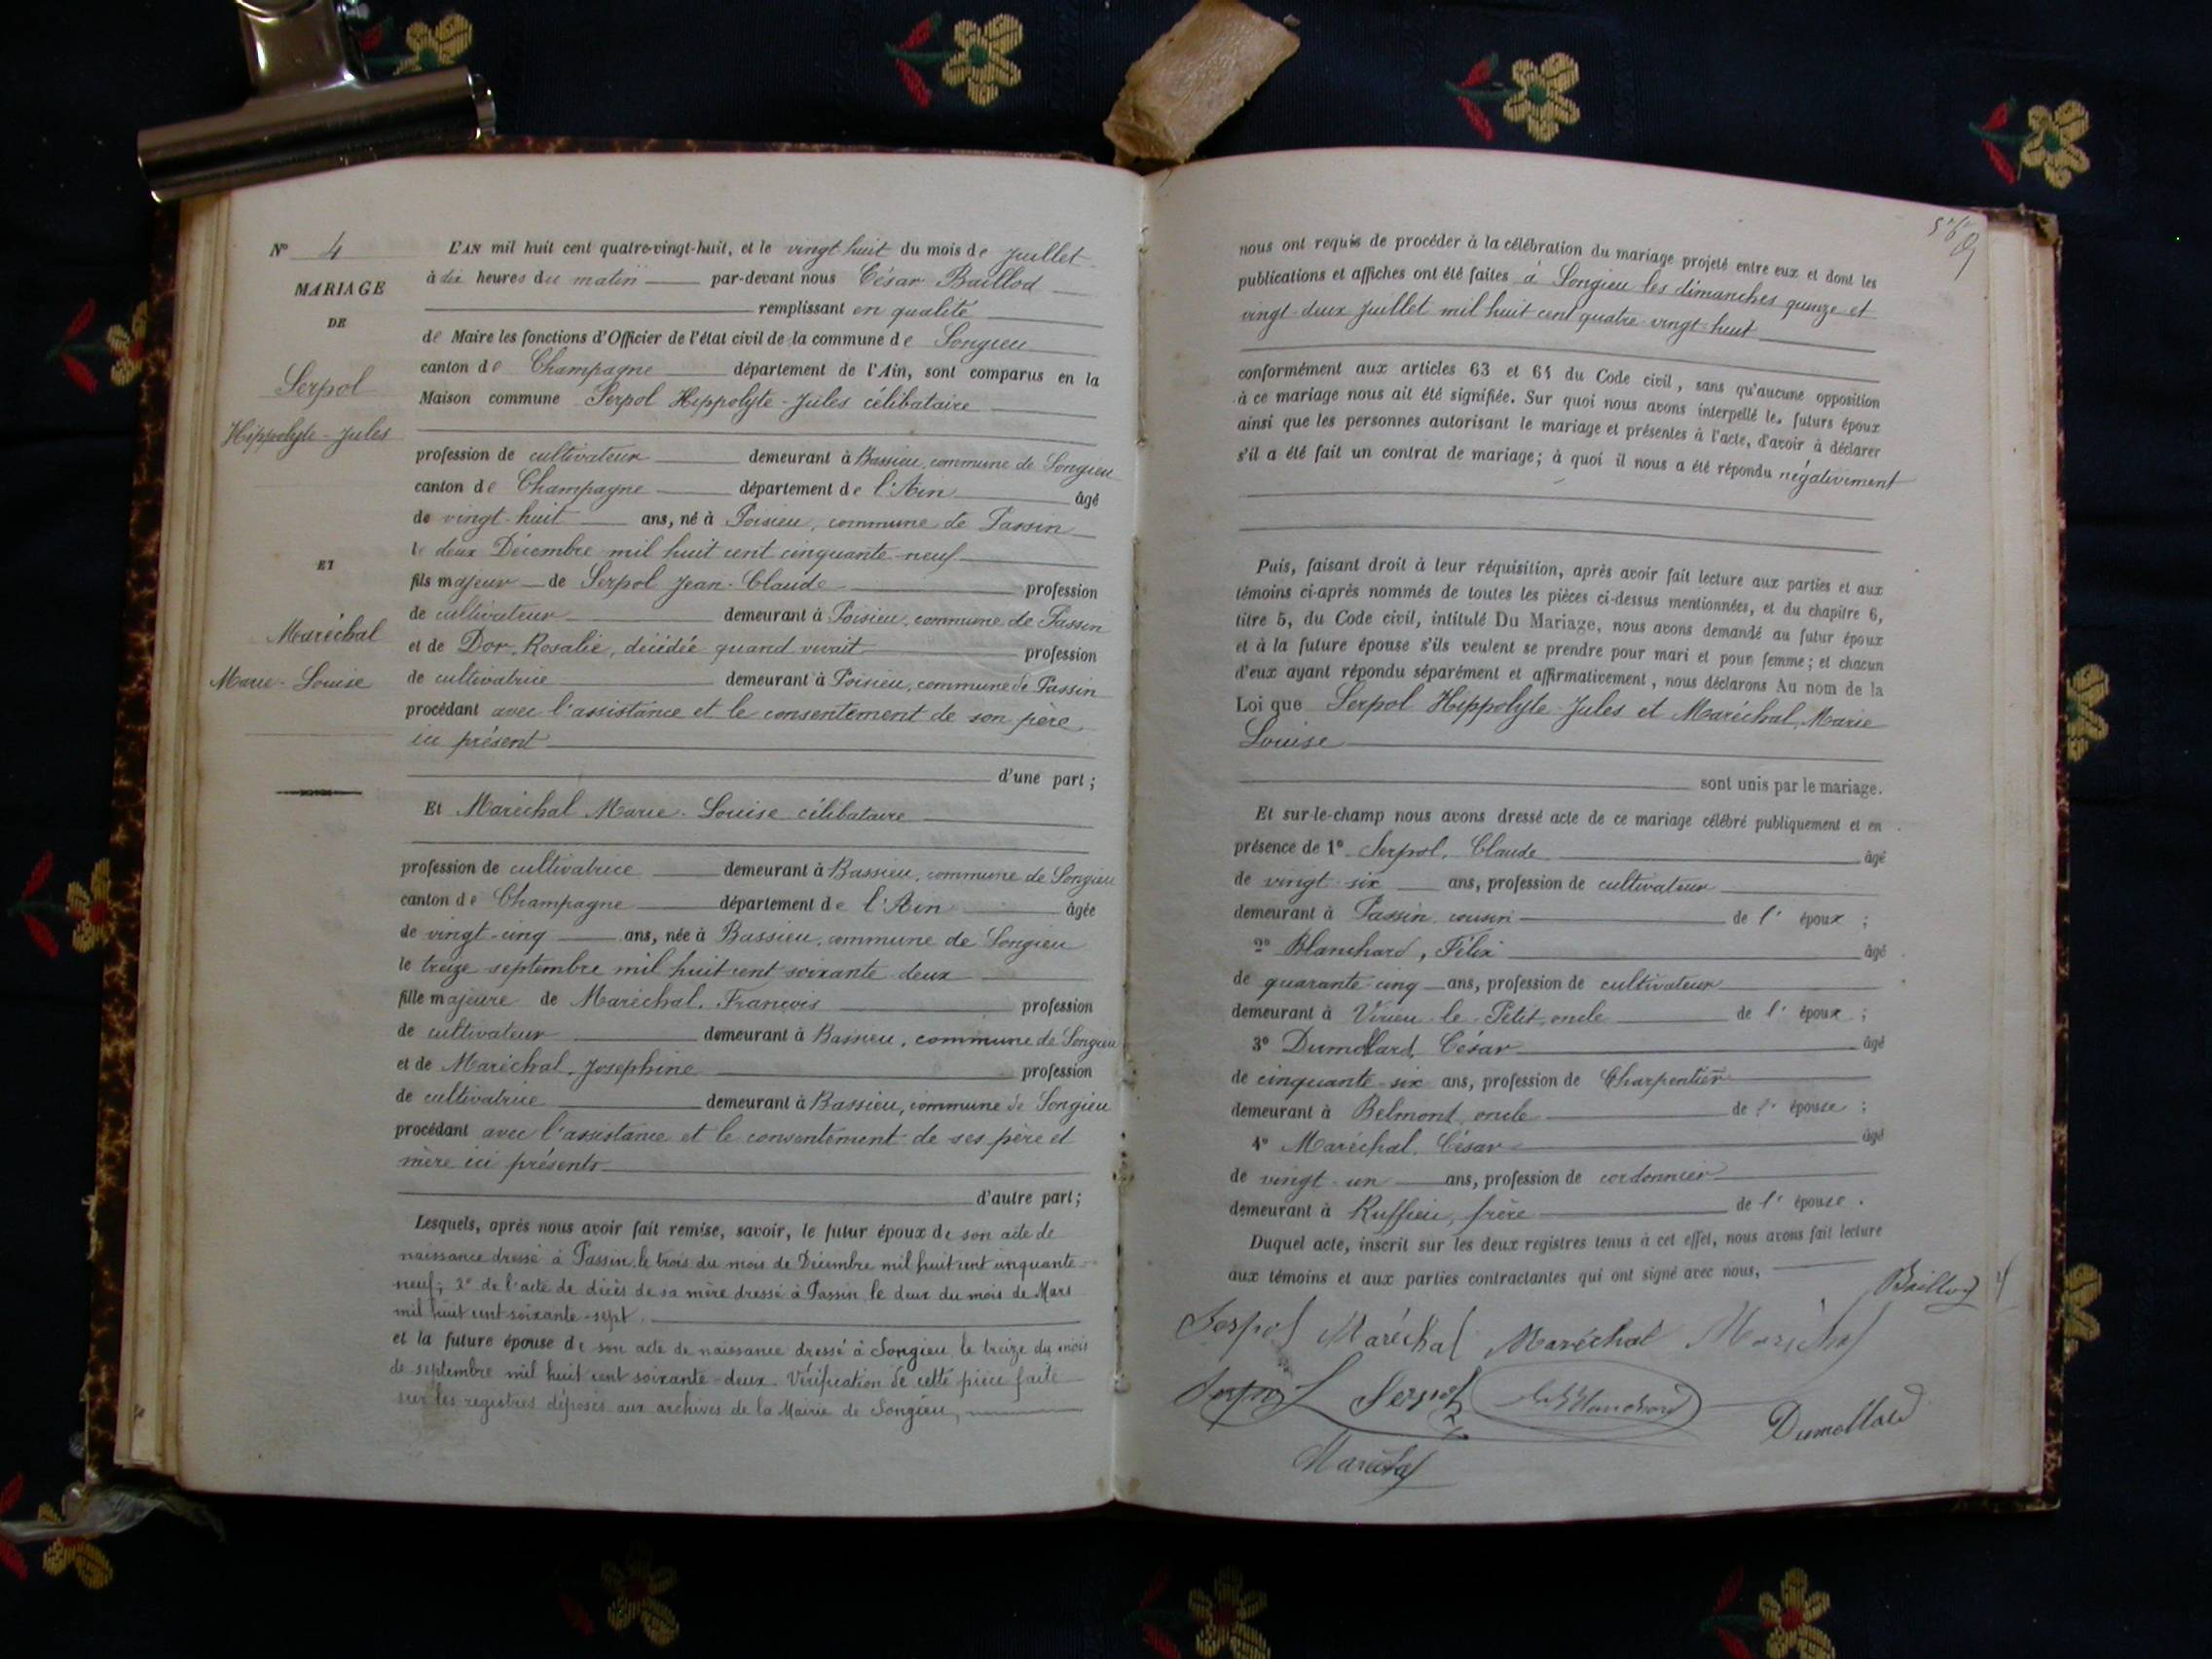 N° 4
MARIAGE
DE
Serpol
Hippolyte-Jules
ET
Maréchal
Marie-Louise
L'AN mil huit cent quatre-vingt-huit, et le vingt huit du mois de Juillet
à dix heures du matin par-devant nous César Baillod
remplissant en qualité
de Maire les fonctions d'Officier de l'état civil de la commune de Songieu
canton de Champagne département de l'Ain, sont comparus en la
Maison commune Serpol Hippolyte-Jules célibataire
profession de cultivateur demeurant à Bassieu, commune de Songieu
canton de Champagne département de l'Ain âgé
de vingt-huit ans, né à Poisieu, commune de Passin
le deux Décembre mil huit cent cinquante-neuf
fils majeur de Serpol Jean-Claude profession
de cultivateur demeurant à Poisieu, commune de Passin
et de Dor, Rosalie, décédée quand vivait profession
de cultivatrice demeurant à Poisieu, commune de Passin
procédant avec l'assistance et le consentement de son père
ici présent
d'une part ;
Et Maréchal Marie-Louise célibataire
profession de cultivatrice demeurant à Bassieu, commune de Songieu
canton de Champagne département de l'Ain âgée
de vingt-cinq ans, née à Bassieu, commune de Songieu
le treize septembre mil huit cent soixante-deux
fille majeure de Maréchal, François profession
de cultivateur demeurant à Bassieu, commune de Songieu
et de Maréchal, Josephine profession
de cultivatrice demeurant à Bassieu, commune de Songieu
procédant avec l'assistance et le consentement de ses père et
mère ici présents
d'autre part ;
Lesquels, après nous avoir fait remise, savoir, le futur époux de son acte de
naissance dressé à Passin le trois du mois de Décembre mil huit cent cinquante-
neuf ; 2° de l'acte de décès de sa mère dressé à Passin le deux du mois de Mars
mil huit cent soixante-sept
et la future épouse de son acte de naissance dressé à Songieu le treize du mois
de septembre mil huit cent soixante-deux. Vérification de cette pièce faite
sur les registres déposés aux archives de la Mairie de Songieu,
nous ont requis de procéder à la célébration du mariage projeté entre eux et dont les
publications et affiches ont été faites à Songieu les dimanches quinze et
vingt-deux Juillet mil huit cent quatre-vingt-huit
conformément aux articles 63 et 64 du Code civil, sans qu'aucune opposition
à ce mariage nous ait été signifiée. Sur quoi nous avons interpellé les futurs époux
ainsi que les personnes autorisant le mariage et présentes à l'acte, d'avoir à déclarer
s'il a été fait un contrat de mariage ; à quoi il nous a été répondu négativement
Puis, faisant droit à leur réquisition, après avoir fait lecture aux parties et aux
témoins ci-après nommés de toutes les pièces ci-dessus mentionnées, et du chapitre 6,
titre 5, du Code civil, intitulé Du Mariage, nous avons demandé au futur époux
et à la future épouse s'ils veulent se prendre pour mari et pour femme ; et chacun
d'eux ayant répondu séparément et affirmativement, nous déclarons Au nom de la
Loi que Serpol Hippolyte-Jules et Maréchal, Marie
Louise
sont unis par le mariage.
Et sur-le-champ nous avons dressé acte de ce mariage célébré publiquement et en
présence de 1° Serpol, Claude âgé
de vingt-six ans, profession de cultivateur
demeurant à Passin, cousin de l' époux ;
2° Blanchard, Félix âgé
de quarante-cinq ans, profession de cultivateur
demeurant à Virieu-le-Petit, oncle de l' époux ;
3° Dumollard, César âgé
de cinquante-six ans, profession de Charpentier
demeurant à Belmont, oncle de l' épouse ;
4° Maréchal, César âgé
de vingt-un ans, profession de cordonnier
demeurant à Ruffieu, frère de l' épouse.
Duquel acte, inscrit sur les deux registres tenus à cet effet, nous avons fait lecture
aux témoins et aux parties contractantes qui ont signé avec nous,
Baillod
Serpol Maréchal Maréchal Maréchal
Serpol Serpol Blanchard Dumollard
Maréchal